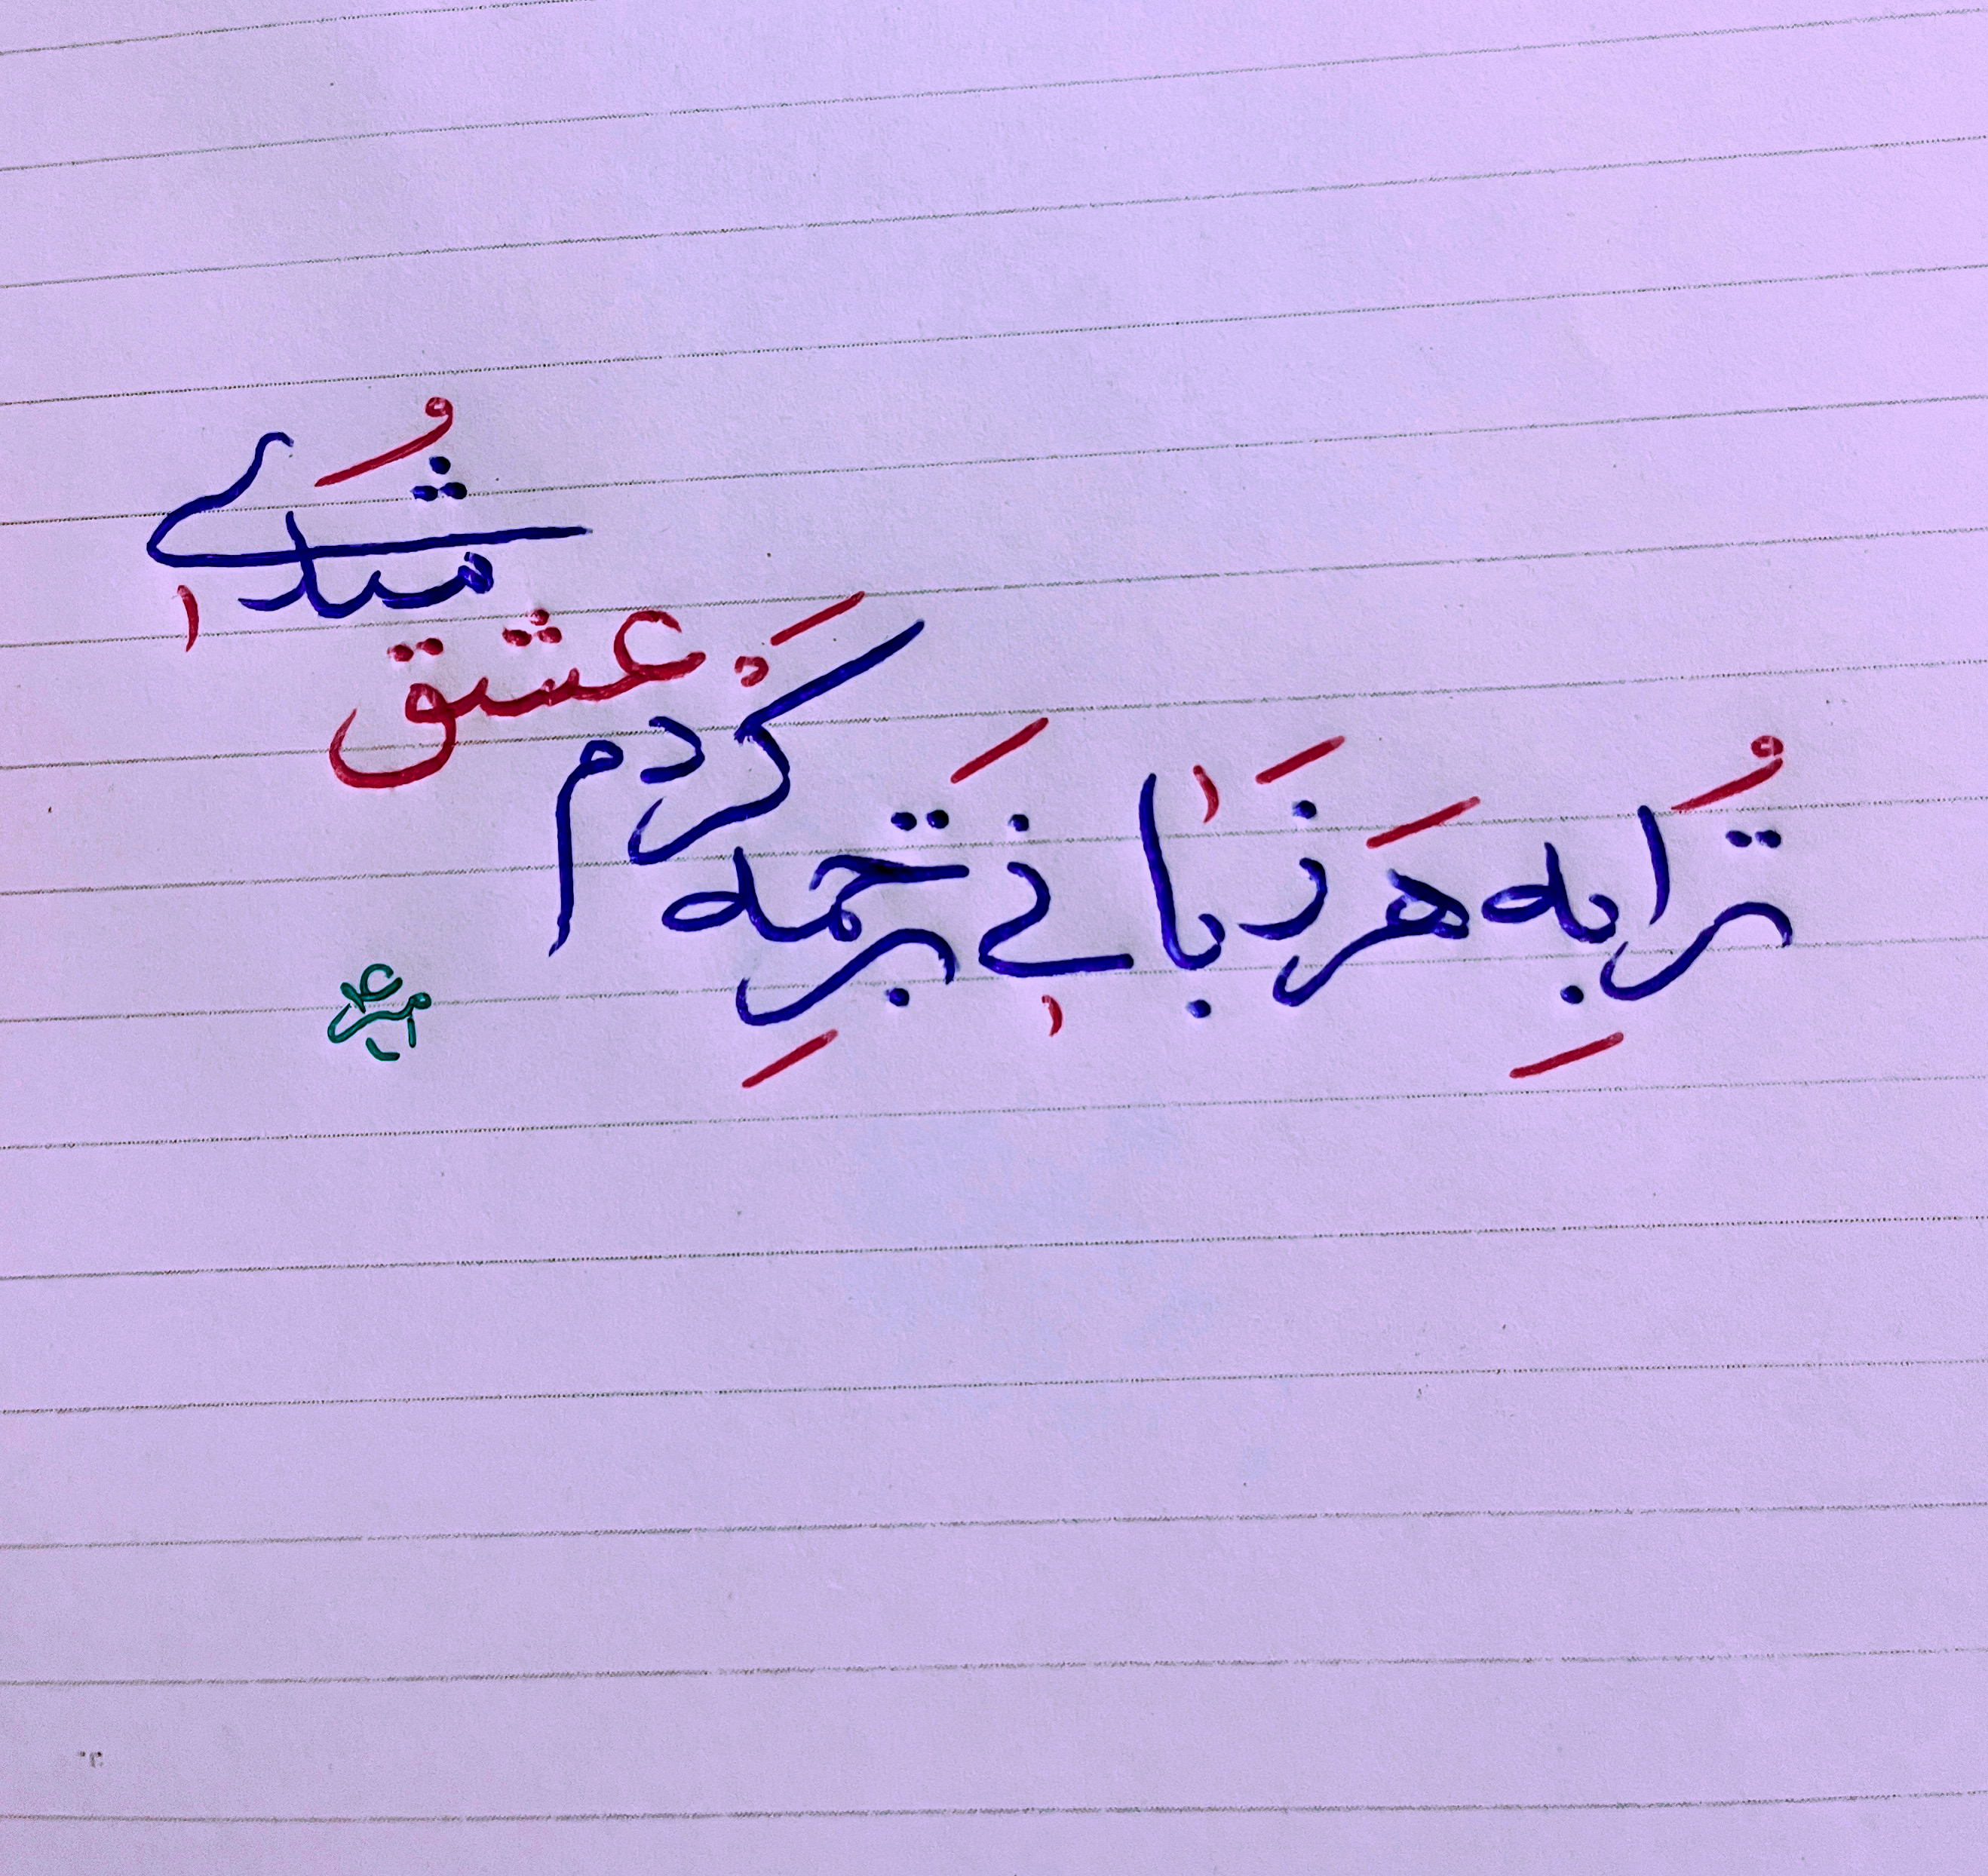 تُرا بِه هَر زَبانی تَرجِمه کَردم عشق میشُدی